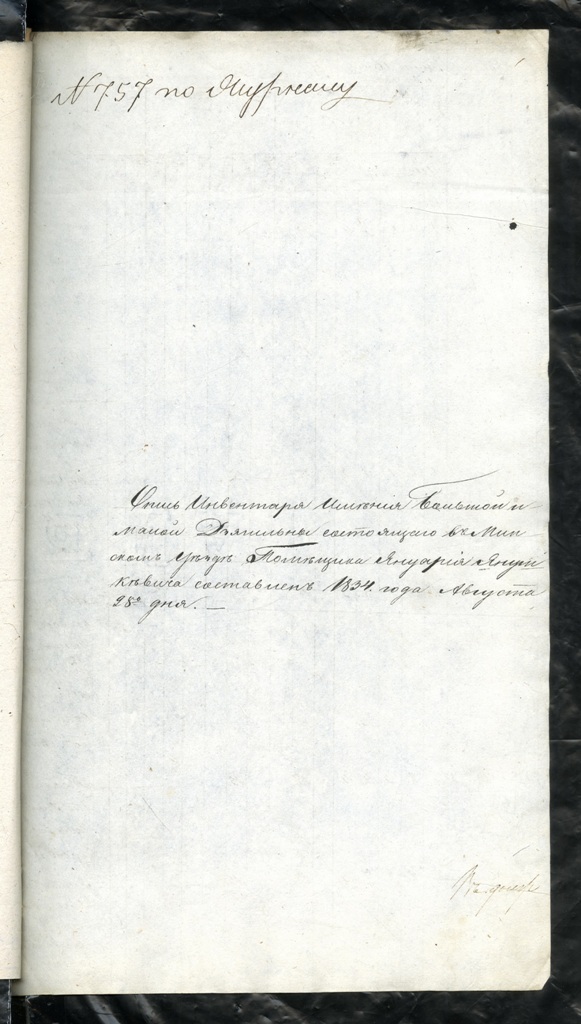 N 757 по Журналу
Опись Инвентаря Имѣнія Большой и
малой Дѣтильны состоящаго въ Мин
скомъ уѣздѣ Помѣщика Януарія Януш
кѣвича составленъ 1834 года Августа
28º дня. —